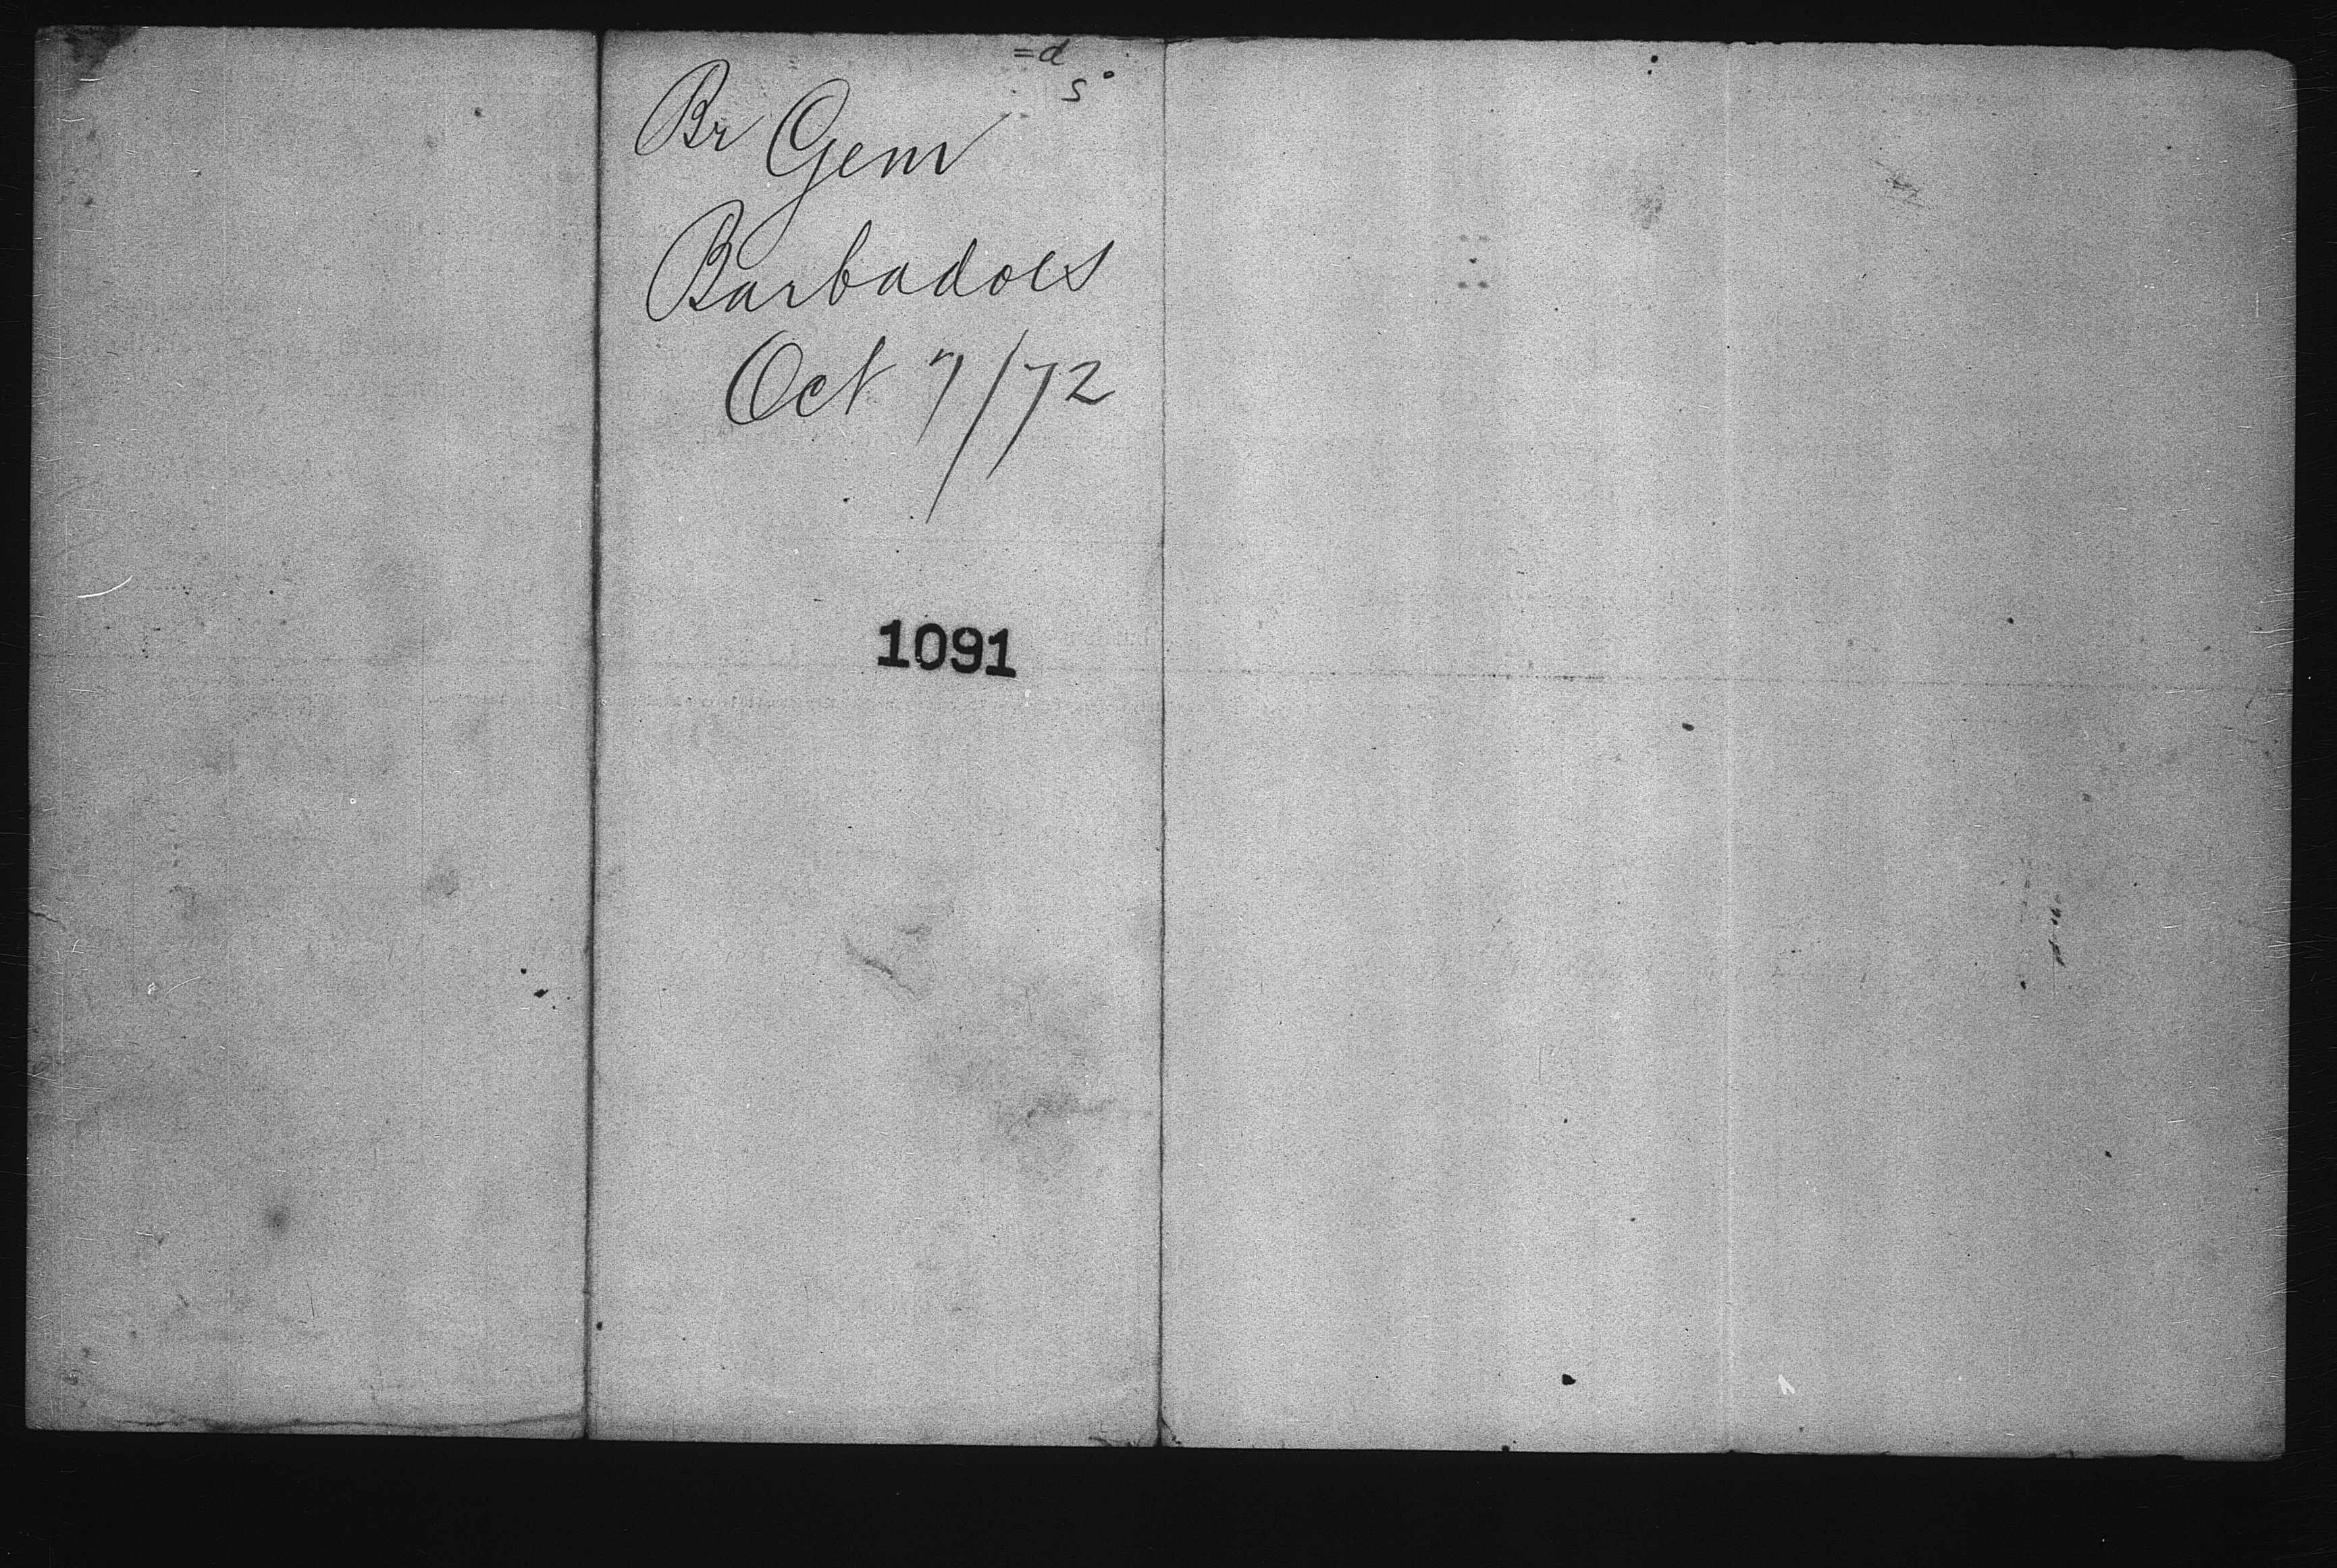 Br Gem
Barbadoes
Oct 7/72
1091